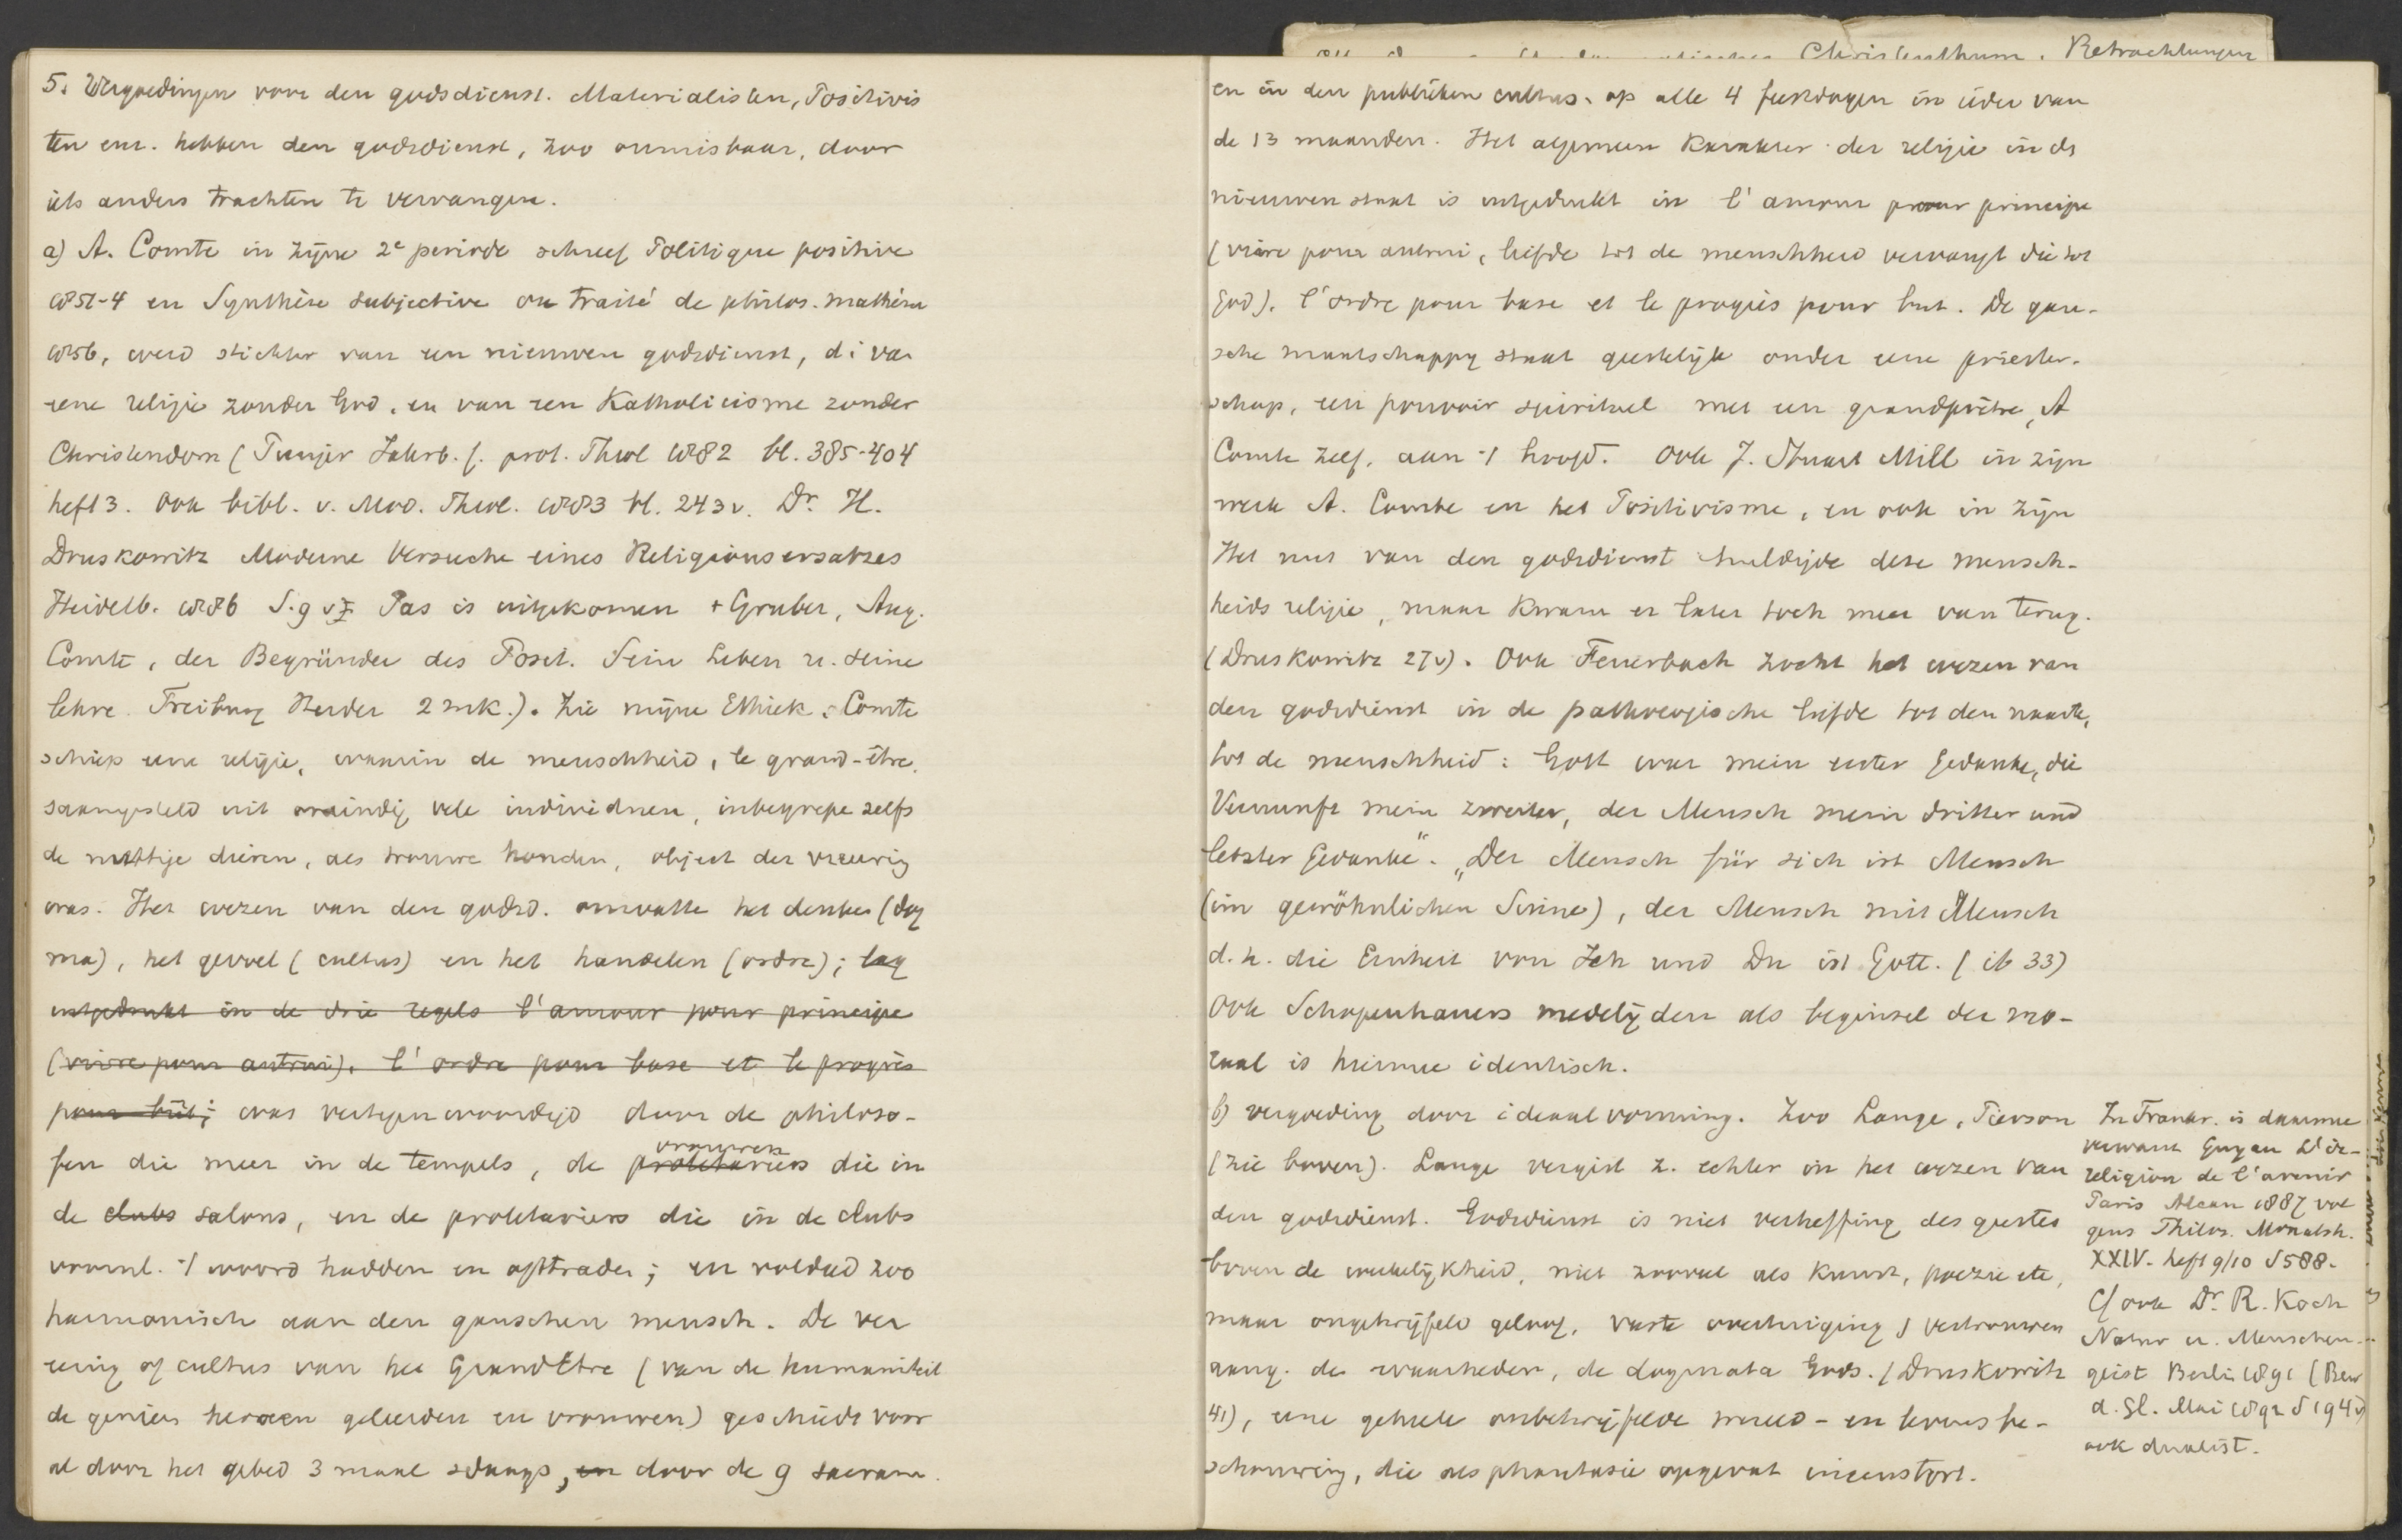 Christenthum. Betrachtungen
5. Vergoedingen voor den godsdienst. Materialisten, Positivis
ten enz. hebben den godsdienst, zoo onmisbaar, door
iets anders trachten te vervangen.
a) A. Comte in zijne 2e periode schreef Politique positive
1851-4 en Synthèse subjective ou traité de philos. mathém
1856, werd stichter van een nieuwen godsdienst, d i van
eene religie zonder God, en van een Katholicisme zonder
Christendom (Punjer Jahrb. f. prot. Theol 1882 bl. 385-404
heft 3. Ook bibl. v. Mod. Theol. 1883 bl. 243v. Dr. H.
Druskowitz Moderne Versuche eines Religionsersatzes
Heidelb. 1886 S. 9 v Pas is uitgekomen + Gruber, Aug.
Comte, der Begründer des Posit. Sein Leben u. seine
Lehre. Freiburg Herder 2 mk.). Zie mijne Ethiek. Comte
schiep eene religie, waarin de menschheid, le grand-être,
saamgesteld uit oneindig vele individuen, inbegrepe zelfs
de nuttige dieren, als trouwe honden, object der vereering
was. Het wezen van den godsd. omvatte het denken (dog
ma), het gevoel (cultus) en het handelen (ordre); lag
uitgedrukt in de drie regels l'amour pour principe
(vivre pour autrui). l'ordre pour base et le progrès
pour but; was vertegenwoordigd door de philoso-
vrouwen
fen die meer in de tempels, de proletariers die in
de clubs salons, en de proletariers die in de clubs
voornl. 't woord hadden en optraden; en voldeed zoo
harmonisch aan den ganschen mensch. De ver
eering of cultus van het Grand Etre (van de humaniteit
de genieen heroeen geleerden en vrouwen) geschiedt voor
al door het gebed 3 maal sdaags, en door de 9 sacram.
en in den publieken cultus. op alle 4 feestdagen in ieder van
de 13 maanden. Het algemeen karakter der religie in ds
nieuwen staat is uitgedrukt in l'amour pour principe
(vivre pour autrui, liefde tot de menschheid vervangt die tot
God). l'ordre pour base et le progrès pour but. De gan-
sche maatschappy staat geestelijk onder eene priester-
schap, een pouvoir spirituel met een grandprêtre, A
Comte zelf, aan 't hoofd. Ook J. Stuart Mill in zijn
werk A. Comte en het Positivisme, en ook in zijn
Het nut van den godsdienst huldigde deze mensch-
heids religie, maar kwam er later toch meer van terug.
(Druskowitz 27v). Ook Feuerbach zocht het wezen van
den godsdienst in de pathologische liefde tot den naaste,
tot de menschheid: Gott war mein erster Gedanke, die
Vernunft mein zweiter, der Mensch mein dritter und
letzter Gedanke". „Der Mensch für sich ist Mensch
(im gewöhnlichen Sinne), der Mensch mit Mensch
d. h. die Einheit von Ich und Du ist Gott. (ib 33)
Ook Schopenhauers medelijden als beginsel der mo-
raal is hiermee identisch.
b) vergoeding door ideaalvorming. Zoo Lange, Pierson
(zie boven). Lange vergist z. echter in het wezen van
den godsdienst. Godsdienst is niet verheffing des geestes
boven de werkelijkheid, niet zooveel als kunst, poezie etc,
maar ongetwijfeld geloof, vaste overtuiging, vertrouwen
aang. de waarheden, de dogmata Gods. (Druskowitz
41), eene geheele onbetwijfelde wereld- en levensbe-
schouwing, die als phantasie opgevat ineenstort.
In Frankr. is daarmee
verwant Guyau L'ir-
religion de l'avenir
Paris Alcan 1887 vol
gens Philos. Monatsh.
XXIV. heft 9/10 S 588.
Cf ook Dr. R. Koch
Natur u. Menschen-
geist Berlin 1891 (Bew
d. Gl. Mai 1892 S 194v)
ook dualist.